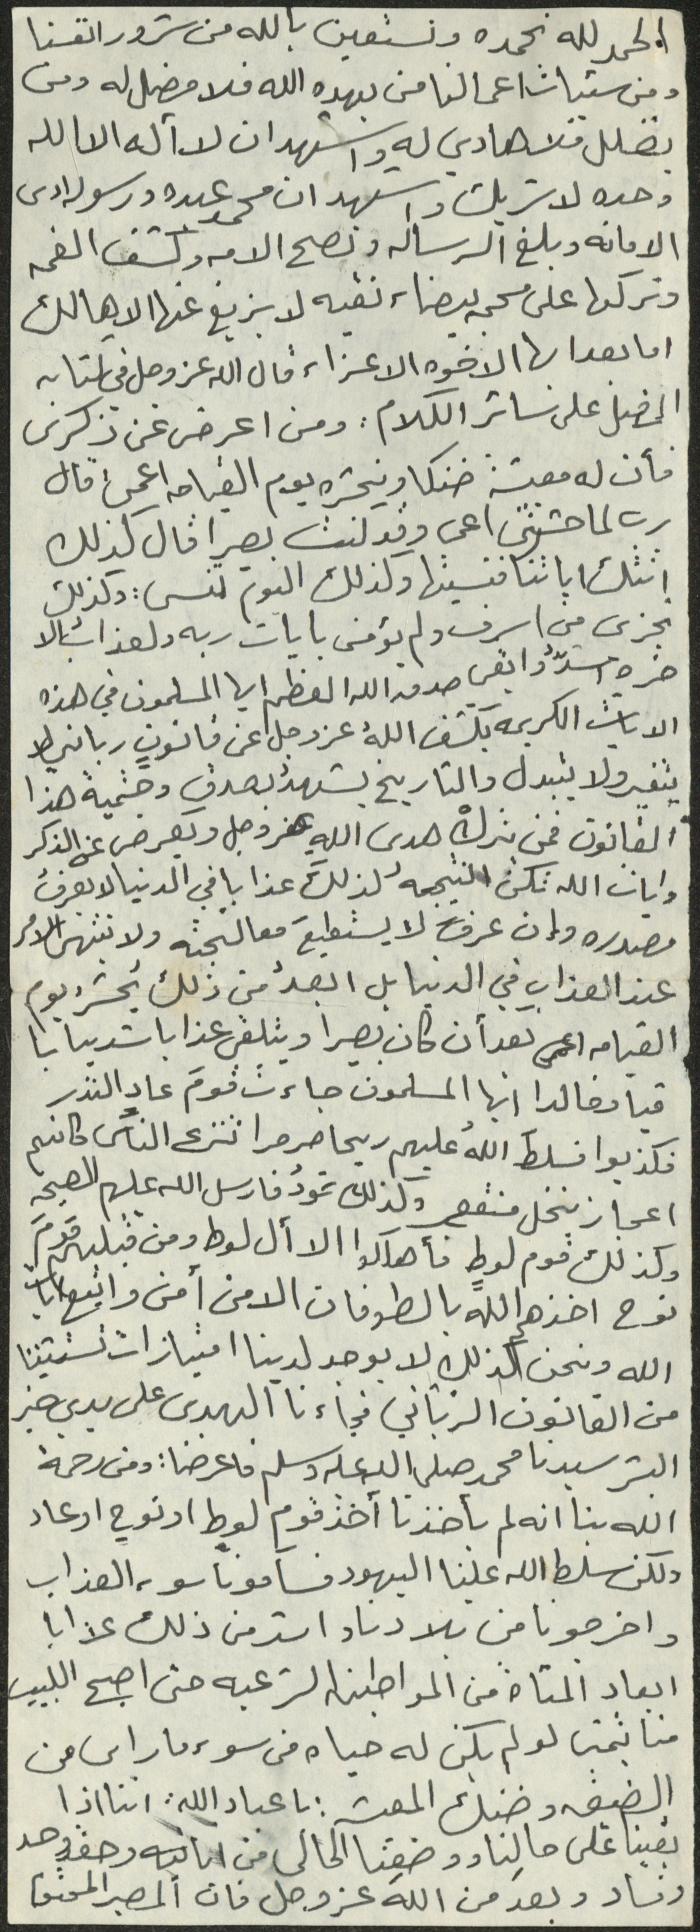 الحمد لله نحمده ونستعين بالله من شرور انفسنا
ومن سيئات اعمالنا من يهده الله فلا مضل له ومن
يضلل فلا هادي له واشهد ان لا أله الا الله
وحده لا شريك واشهد ان محمد عبده ورسوله ادى
الامانه وبلغ الرساله ونصح الامه وكشف الغمه
وتركها على محجه بيضاء نقيه لا يزيغ عنها الا هالك
اما بعد ايها الاخوه الاعزاء قال الله عز وجل في كتابه
المفضل على سائر الكلام : ومن اعرض عن ذكرى
فأن له معيشة ضنكا ونحشره يوم القيامه اعمى قال
رب لما حشرتني اعمى وقد كنت بصيرا قال كذلك
اتتك اياتنا فنسيتها وكذلك اليوم تنسى : وكذلك
نجزى من اسرف ولم يؤمن بايات ربه ولعذاب الا
خره اشدُّ وابقى صدق الله العظيم ايها المسلمون في هذه
الايات الكريمه يكشف اللهُ عز وجل عن قانونٍ رباني لا
يتغير ولا يتبدل والتاريخ يشهدُ بصدق وحتمية هذا
القانون فمن يترك هدى اللهِ عز وجل ويعرض عن الذكر
وايات الله تكن النتيجهُ لذلك عذابا في الدنيا لا يعرفُ
مصدره وان عرفَ لا يستطيعَ معالجته ولا ينتهى الامر
عند العذابِ في الدنيا بل ابعدُ من ذلك يُحشر يوم
القيامه اعمى بعد أن كان بصيرا ويتلقى عذابا شديدا با
قيا وخالدا ايها المسلمون جاءت قومَ عادٍ النذر
فكذبوا فسلطَ اللهُ عليهم ريحا صرصرا تنزع الناسَ كانهم
اعجاز نخل منقعر وكذلك ثمودُ فارسل الله عليهم الصيحه
وكذلك قوم لوطٍ فأهلكوا الا أل لوط ومن قبلهم قومَ
نوح اخذهم اللهُ بالطوفان الا من أمن واتبع ايات
الله ونحن كذلك لا يوجد لدينا امتيازات تستثنينا
من القانون الرباني فجاءنا الهدى على يدي خير
البشر سيدنا محمد صلى الله عليه وسلم فاعرضنا : ومن رحمة
الله بنا انه لم يأخذنا أخذ قوم لوط او نوح او عاد
ولكن سلط الله علينا اليهود فسامونا سوء العذاب
واخرجونا من بلادنا واشد من ذلك عذابا
ابعاد المئاة من المواطنين الشرعيه حتى اصبح اللبيب
منا يتمنى لو لم يكن له حياه من سوء ما راى من
الضيق وضنك المعيشه : يا عباد الله : اننا اذا
بقينا على حالنا ووضعنا الحالى من انانيه وحقد وحسد
وفساد وبعد من اللهَ عز وجل فان المصير المحتوم